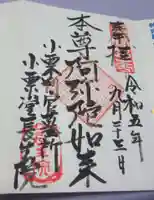 奉拝
令和五年
九月二十三日
本尊阿弥陀如来
小栗判官墓所
小栗堂長生院